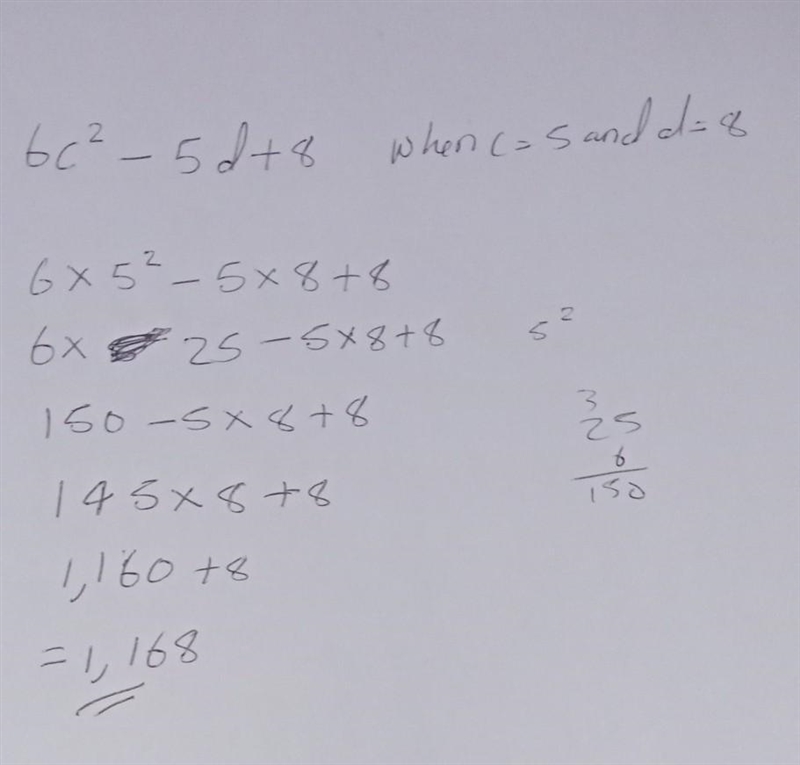 6c² – 5d+8 when c= 5 and d= 8
6 × 5² – 5 × 8 + 8
6 × 25 – 5 × 8 + 8
5²
150 – 5 × 8 + 8
3
25
6
150
145 × 8 + 8
1,160 + 8
= 1,168